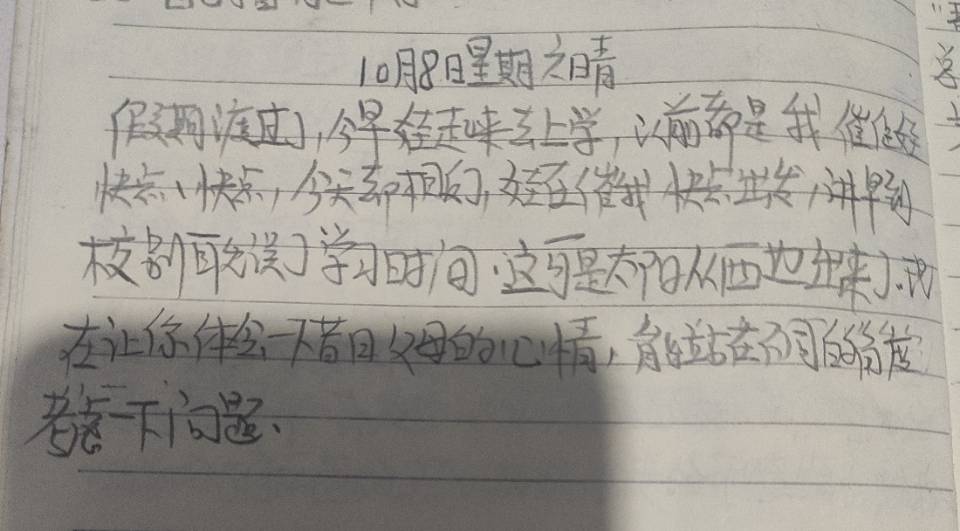 10月8日星期六日晴
假期渡过了,今早娃起来去上学,以前都是我催促娃
快点、快点,今天却相反了,娃至催我快点出发,讲早到
校别耽误了学习时间.这可是太阳从西边出来了.我
在让你体会一下昔日父母的心情,能站在不同的角度
考虑一下问题.